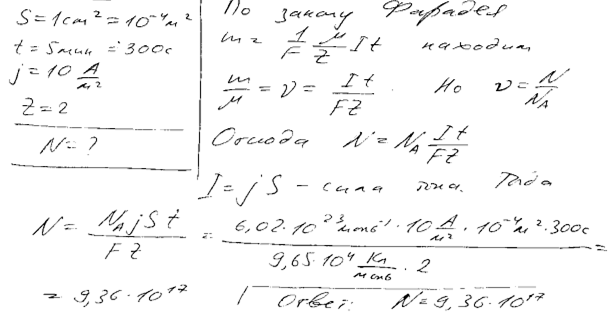 S = 1 cm² = 10⁻⁴ м²
t = 5 мин = 300 с
j = 10 А/м²
Z = 2
N = ?
По закону Фарадея
m = 1/F μ/Z It находим
m/μ = ν = It/FZ. Но ν = N/N_A
Отсюда N = N_A It/FZ
I = jS – сила тока. Тогда
N = N_A j S t / F Z = 6,02·10²³ моль⁻¹ · 10 А/м² · 10⁻⁴ м² · 300 с / 9,65·10⁴ Кл/моль · 2 =
= 9,36·10¹⁷
Ответ: N = 9,36·10¹⁷